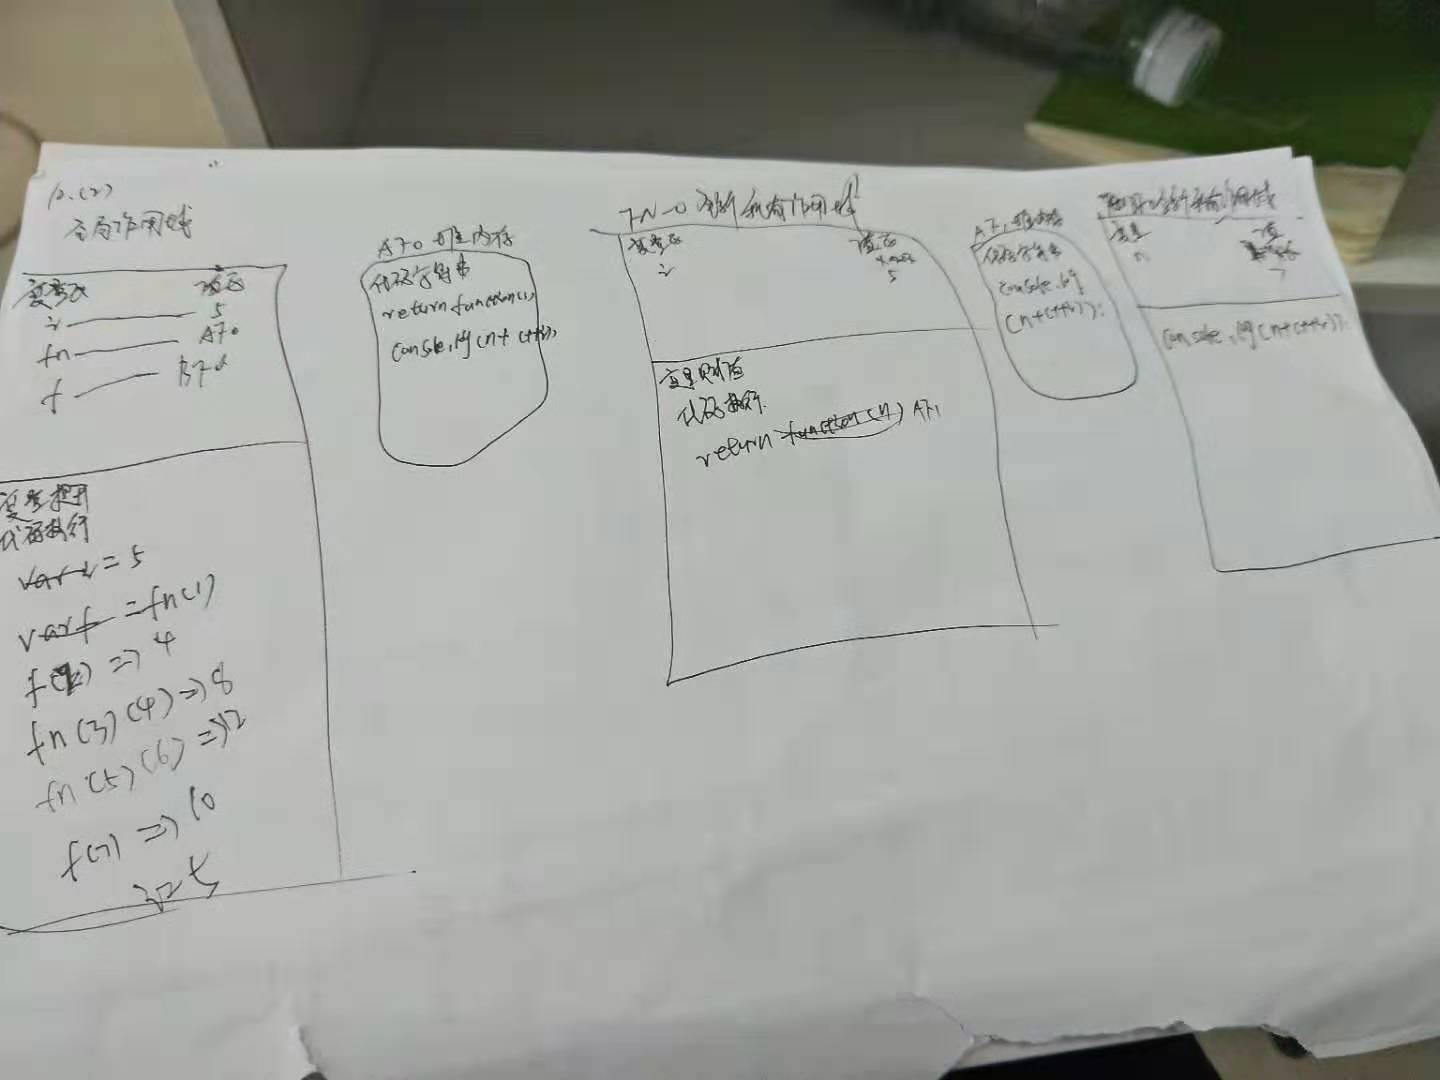 12.(2)
全局作用域
变量区 值区
i 5
fn AF0
f BF0
变量提升
代码执行
var i = 5
var f = fn(1)
f(2) => 4
fn(3)(4) => 8
fn(5)(6) => 12
f(7) => 10
AF0 堆内存
代码字符串
return function(n)
console.log(n+(++i));
FN-0 全新私有作用域
变量区 值区
i
5
变量赋值
代码执行
return function(n) AF1
AF1 堆内存
代码字符串
console.log
(n+(++i));
全新私有作用域
变量 值
n 7
console.log(n+(++i));